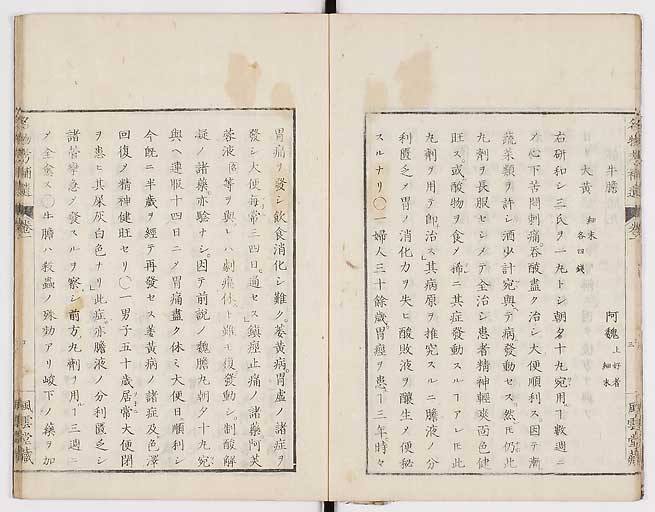 牛膽
大黄 細末 各四錢
阿魏 上好者 細末
右研和シ三氏ヲ一丸トシ朝名十九宛用ー數週ニ
〆心下苦悶刺痛吞酸盡ク治シ大便順利ス因テ漸
蔬菜類ヲ許シ酒少計宛與テ病發動セス然𪜈仍此
九劑ヲ長服セシメテ全治シ患者精神輕爽面色健
旺ス或酸物ヲ食〆稀ニ其症發動スルーアレ𪜈此
丸劑ヲ用テ即治ス其病原ヲ推究スルニ膽液ノ分
利匱乏〆胃ノ消化力ヲ失ヒ酸敗液ヲ釀生〆便秘
スルナリ○一婦人三十餘歳胃痙ヲ患ー三年時々
胃痛ヲ發シ飲食消化シ難ク萎黄病胃虚ノ諸症ヲ
發シ大便毎常三四日通セス鎮痙止痛ノ諸藥阿芙
蓉液 等ヲ與レハ劇痛休ト雖𪜈復發動シ制酸解
凝ノ諸藥亦驗ナシ因テ前説ノ魏膽丸朝夕十九宛
與ヘ連服十四日ニ〆胃痛盡ク休ミ大便日順利シ
今既ニ半歳ヲ經テ再發セス萎黄病ノ諸症及色澤
回復〆精神健旺セリ○一男子五十歳居常大便閉
ヲ患ヒ其屎灰白色ナリ此症亦膽液ノ分利匱乏シ
諸管攣急〆發スルヲ察シ前方丸劑ヲ用ー三週ニ
〆全愈ス○牛膽ハ殺蟲ノ殊効アリ峻下ノ藥ヲ加
風雲堂藏
風雲堂藏